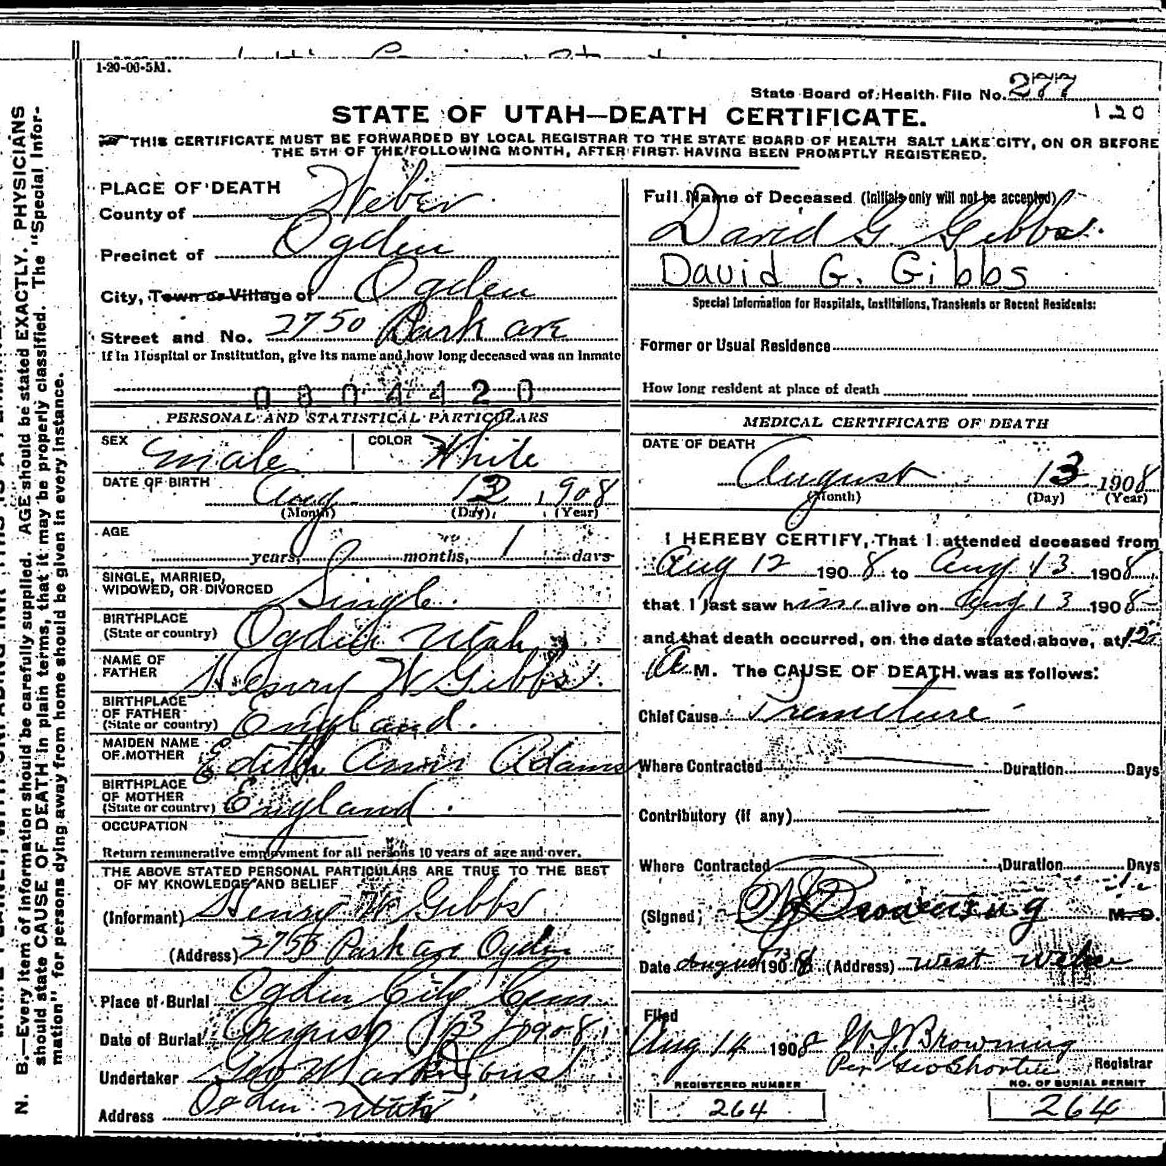 1-20-06-5M.
State Board of Health File No. 277
120
STATE OF UTAH—DEATH CERTIFICATE.
THIS CERTIFICATE MUST BE FORWARDED BY LOCAL REGISTRAR TO THE STATE BOARD OF HEALTH SALT LAKE CITY, ON OR BEFORE
THE 5TH OF THE FOLLOWING MONTH, AFTER FIRST HAVING BEEN PROMPTLY REGISTERED.
N. B.—Every item of information should be carefully supplied. AGE should be stated EXACTLY. PHYSICIANS
should state CAUSE OF DEATH in plain terms, that it may be properly classified. The "Special Infor-
mation" for persons dying away from home should be given in every instance.
PLACE OF DEATH
County of Weber
Precinct of Ogden
City, Town or Village of Ogden
Street and No. 2750 Park ave
If in Hospital or Institution, give its name and how long deceased was an inmate
0804420
PERSONAL AND STATISTICAL PARTICULARS
SEX male COLOR White
DATE OF BIRTH Aug 13 1908
(Month) (Day) (Year)
AGE years, months, 1 days
SINGLE, MARRIED,
WIDOWED, OR DIVORCED Single
BIRTHPLACE
(State or country) Ogden Utah
NAME OF
FATHER Henry W Gibbs
BIRTHPLACE
OF FATHER
(State or country) England.
MAIDEN NAME
OF MOTHER Edith Ann Adams
BIRTHPLACE
OF MOTHER
(State or country) England.
OCCUPATION
Return remunerative employment for all persons 10 years of age and over.
THE ABOVE STATED PERSONAL PARTICULARS ARE TRUE TO THE BEST
OF MY KNOWLEDGE AND BELIEF
(Informant) Henry W Gibbs
(Address) Park ave Ogden
Place of Burial Ogden City Cem
Date of Burial August 13 1908
Undertaker Geo
Address Ogden Utah
Full Name of Deceased (Initials only will not be accepted)
David G Gibbs.
David G. Gibbs
Special Information for Hospitals, Institutions, Transients or Recent Residents:
Former or Usual Residence
How long resident at place of death
MEDICAL CERTIFICATE OF DEATH
DATE OF DEATH
August 13 1908
(Month) (Day) (Year)
I HEREBY CERTIFY, That I attended deceased from
Aug 12 1908 to Aug 13 1908
that I last saw him alive on Aug 13 1908
and that death occurred, on the date stated above, at
A M. The CAUSE OF DEATH was as follows:
Chief Cause Premeture
Where Contracted Duration Days
Contributory (if any)
Where Contracted Duration Days
(Signed) WJ Browning M.D.
Date August 1908 (Address) West Weber
Filed
Aug 14 1908 W.J. Browning
Per Geo Shorten Registrar
REGISTERED NUMBER
264
NO. OF BURIAL PERMIT
264